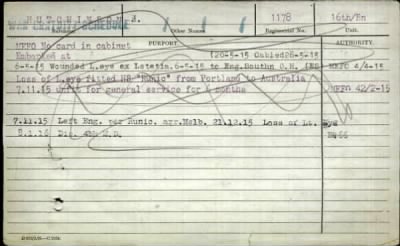 HUTCHINSON J. 1178 16th/Bn
WAR GRATUITY SCHEDULE
PURPORT Regimental No. Unit.
AUTHORITY.
MRFO No card in cabinet
Embarked at (20-5-15 Cabled 26-5-15
6-5-15 Wounded L.eye ex 6-5-15 to Eng. Southn G.H. MRFO 4/4-15
Loss of L.eye fitted HS "Runic" from Portland to Australia
7.11.15 Unfit for general service for 4 months MRFO 42/2-15
7.11.15 Left Eng. per Runic. arr.Melb. 21.12.15 Loss of Lt. Eye
8.1.16 Dis. 4th M.D.